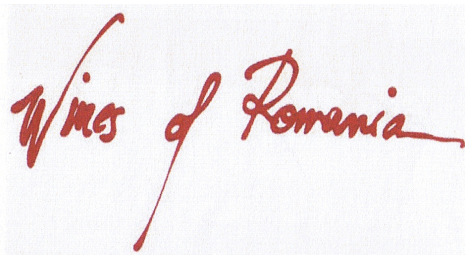 Wines of Romania